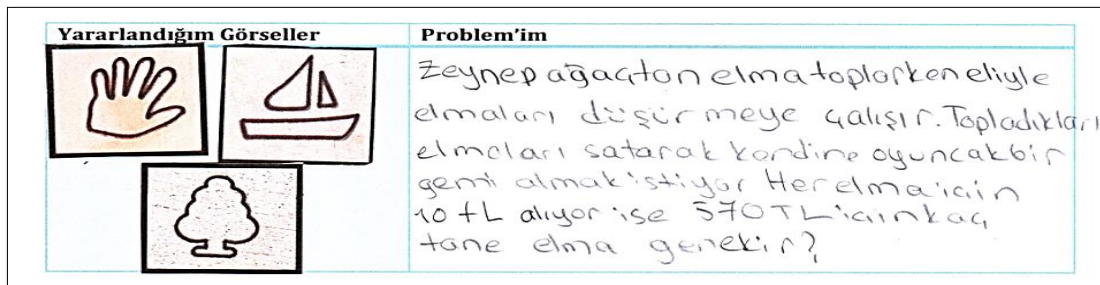 Yararlandığım Görseller
Problem'im
Zeynep ağaçtan elma toplarken eliyle
elmaları düşürmeye çalışır. Topladıkları
elmaları satarak kendine oyuncak bir
gemi almak istiyor Her elma için
10 TL alıyor ise 570 TL için kaç
tane elma gerekir?